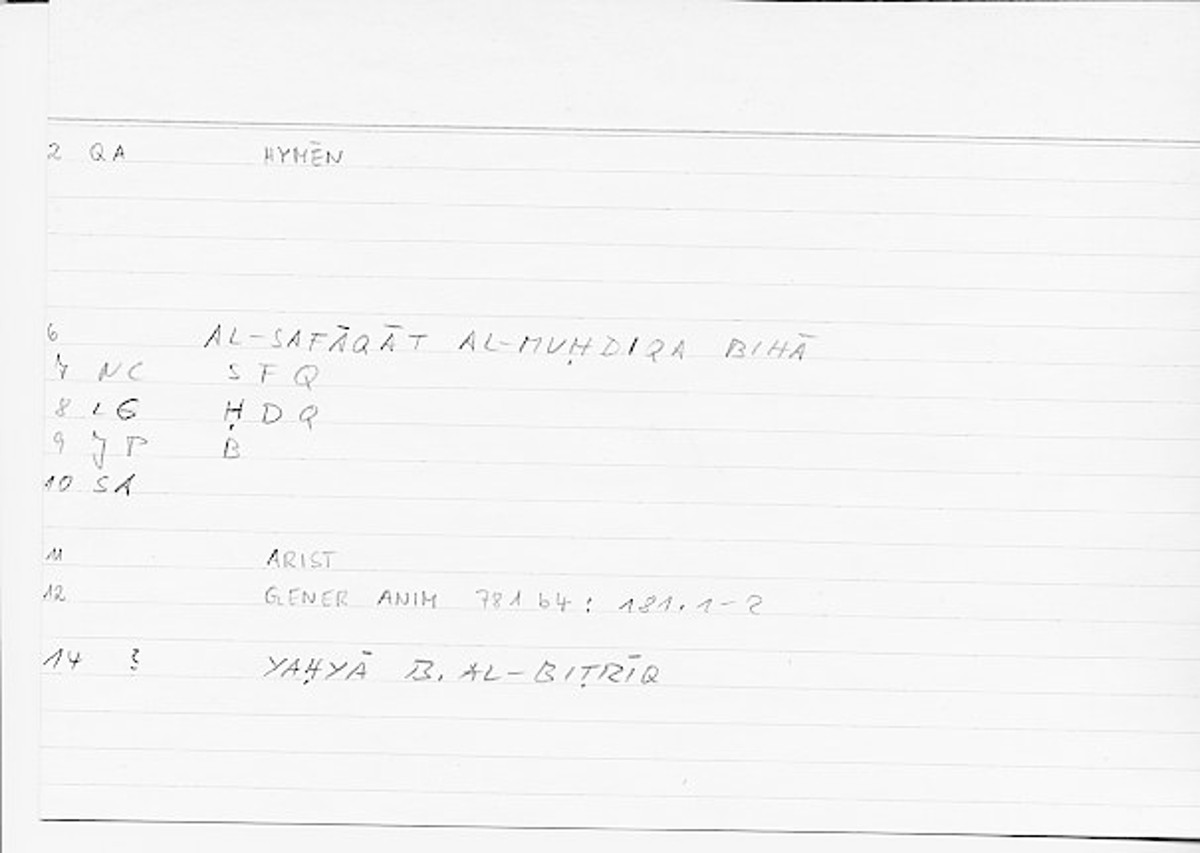 2 QA HYMĒN
6 AL-SAFĀQĀT AL-MUḤDIQA BIHĀ
7 NC S F Q
8 LG Ḥ D Q
9 JP B
10 SA
11 ARIST
12 GENER ANIM 781 b4: 181.1-2
14 YAḤYĀ B. AL-BIṬRĪQ